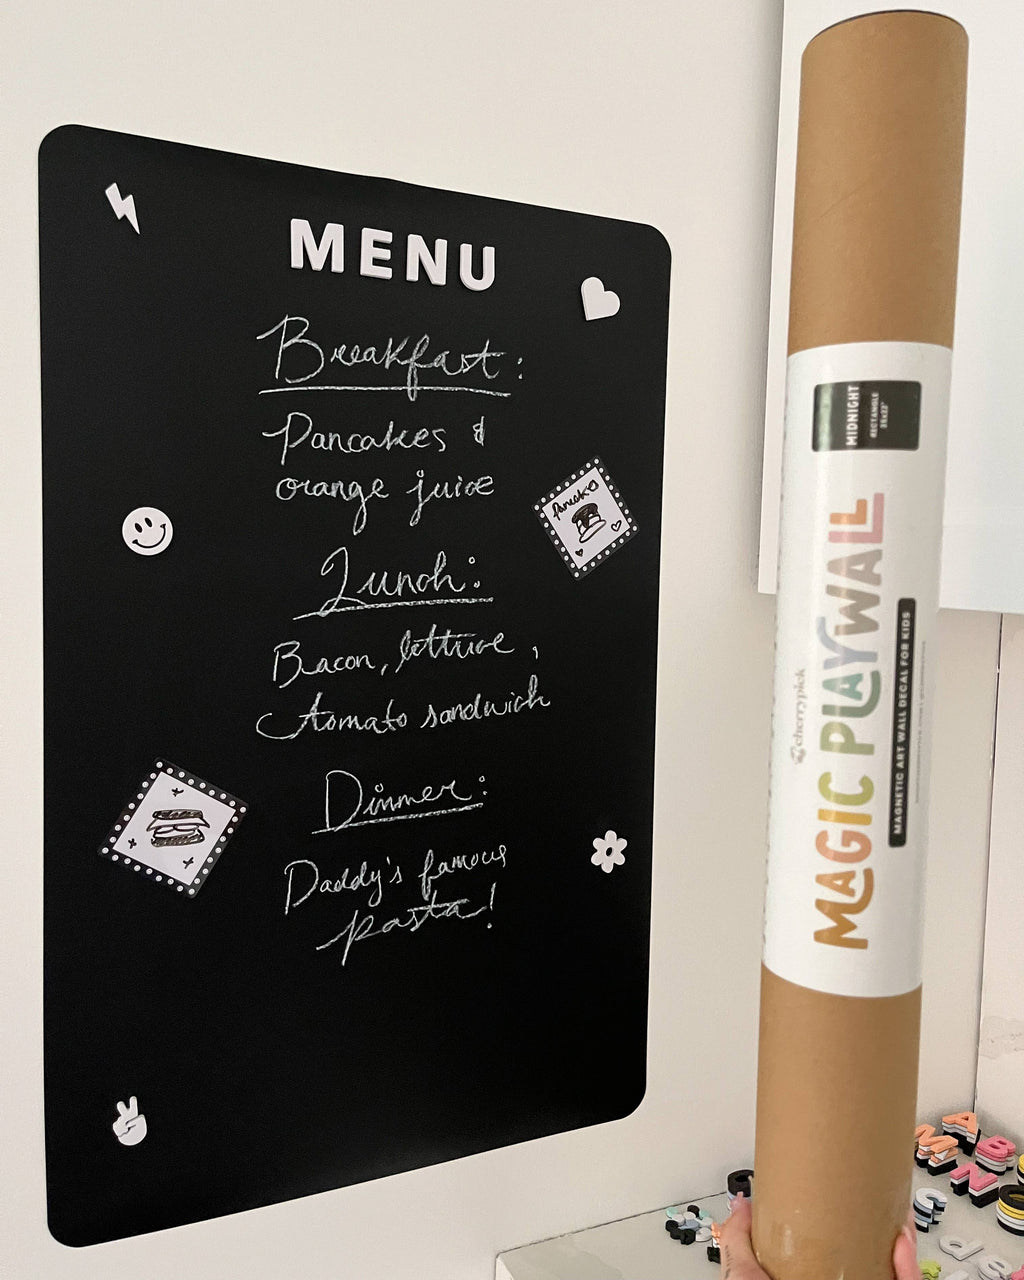 MENU
Breakfast:
Pancakes &
orange juice
Pancakes
Lunch:
Bacon, lettuce,
tomato sandwich
Dinner:
Daddy's famous
pasta!
MIDNIGHT
RECTANGLE
cherrypick
MAGIC PLAYWALL
MAGNETIC ART WALL DECAL FOR KIDS
A
B
M
N